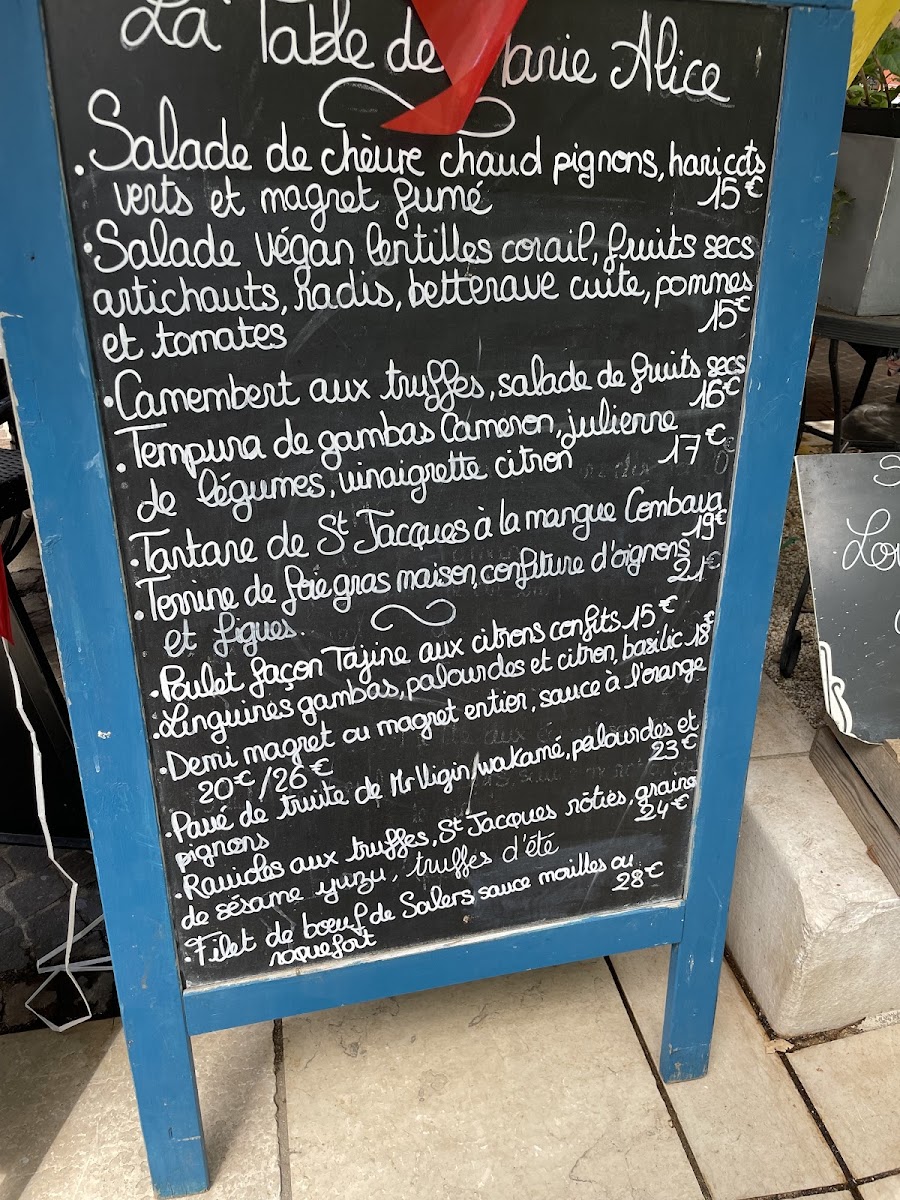 La Table de Marie Alice
. Salade de chèvre chaud pignons, haricots
verts et magret fumé 15€
. Salade végan lentilles corail, fruits secs
artichauts, radis, betterave cuite, pommes
et tomates 15€
. Camembert aux truffes, salade de fruits secs
16€
. Tempura de gambas Cameron, julienne
de légumes, vinaigrette citron 17€
. Tartare de St Jacques à la mangue Combava
19€
. Terrine de foie gras maison, confiture d'oignons
et figues. 21€
. Poulet façon Tajine aux citrons confits 15€
. Linguines gambas, palourdes et citron, basilic 18€
. Demi magret ou magret entier, sauce à l'orange
20€/26€
. Pavé de truite de Mr Vigin/wakamé, palourdes et
pignons 23€
. Ravioles aux truffes, St Jacques rôties, graine
de sésame yuzu, truffes d'éte 24€
. Filet de boeuf de Salers sauce morilles ou
roquefort 28€